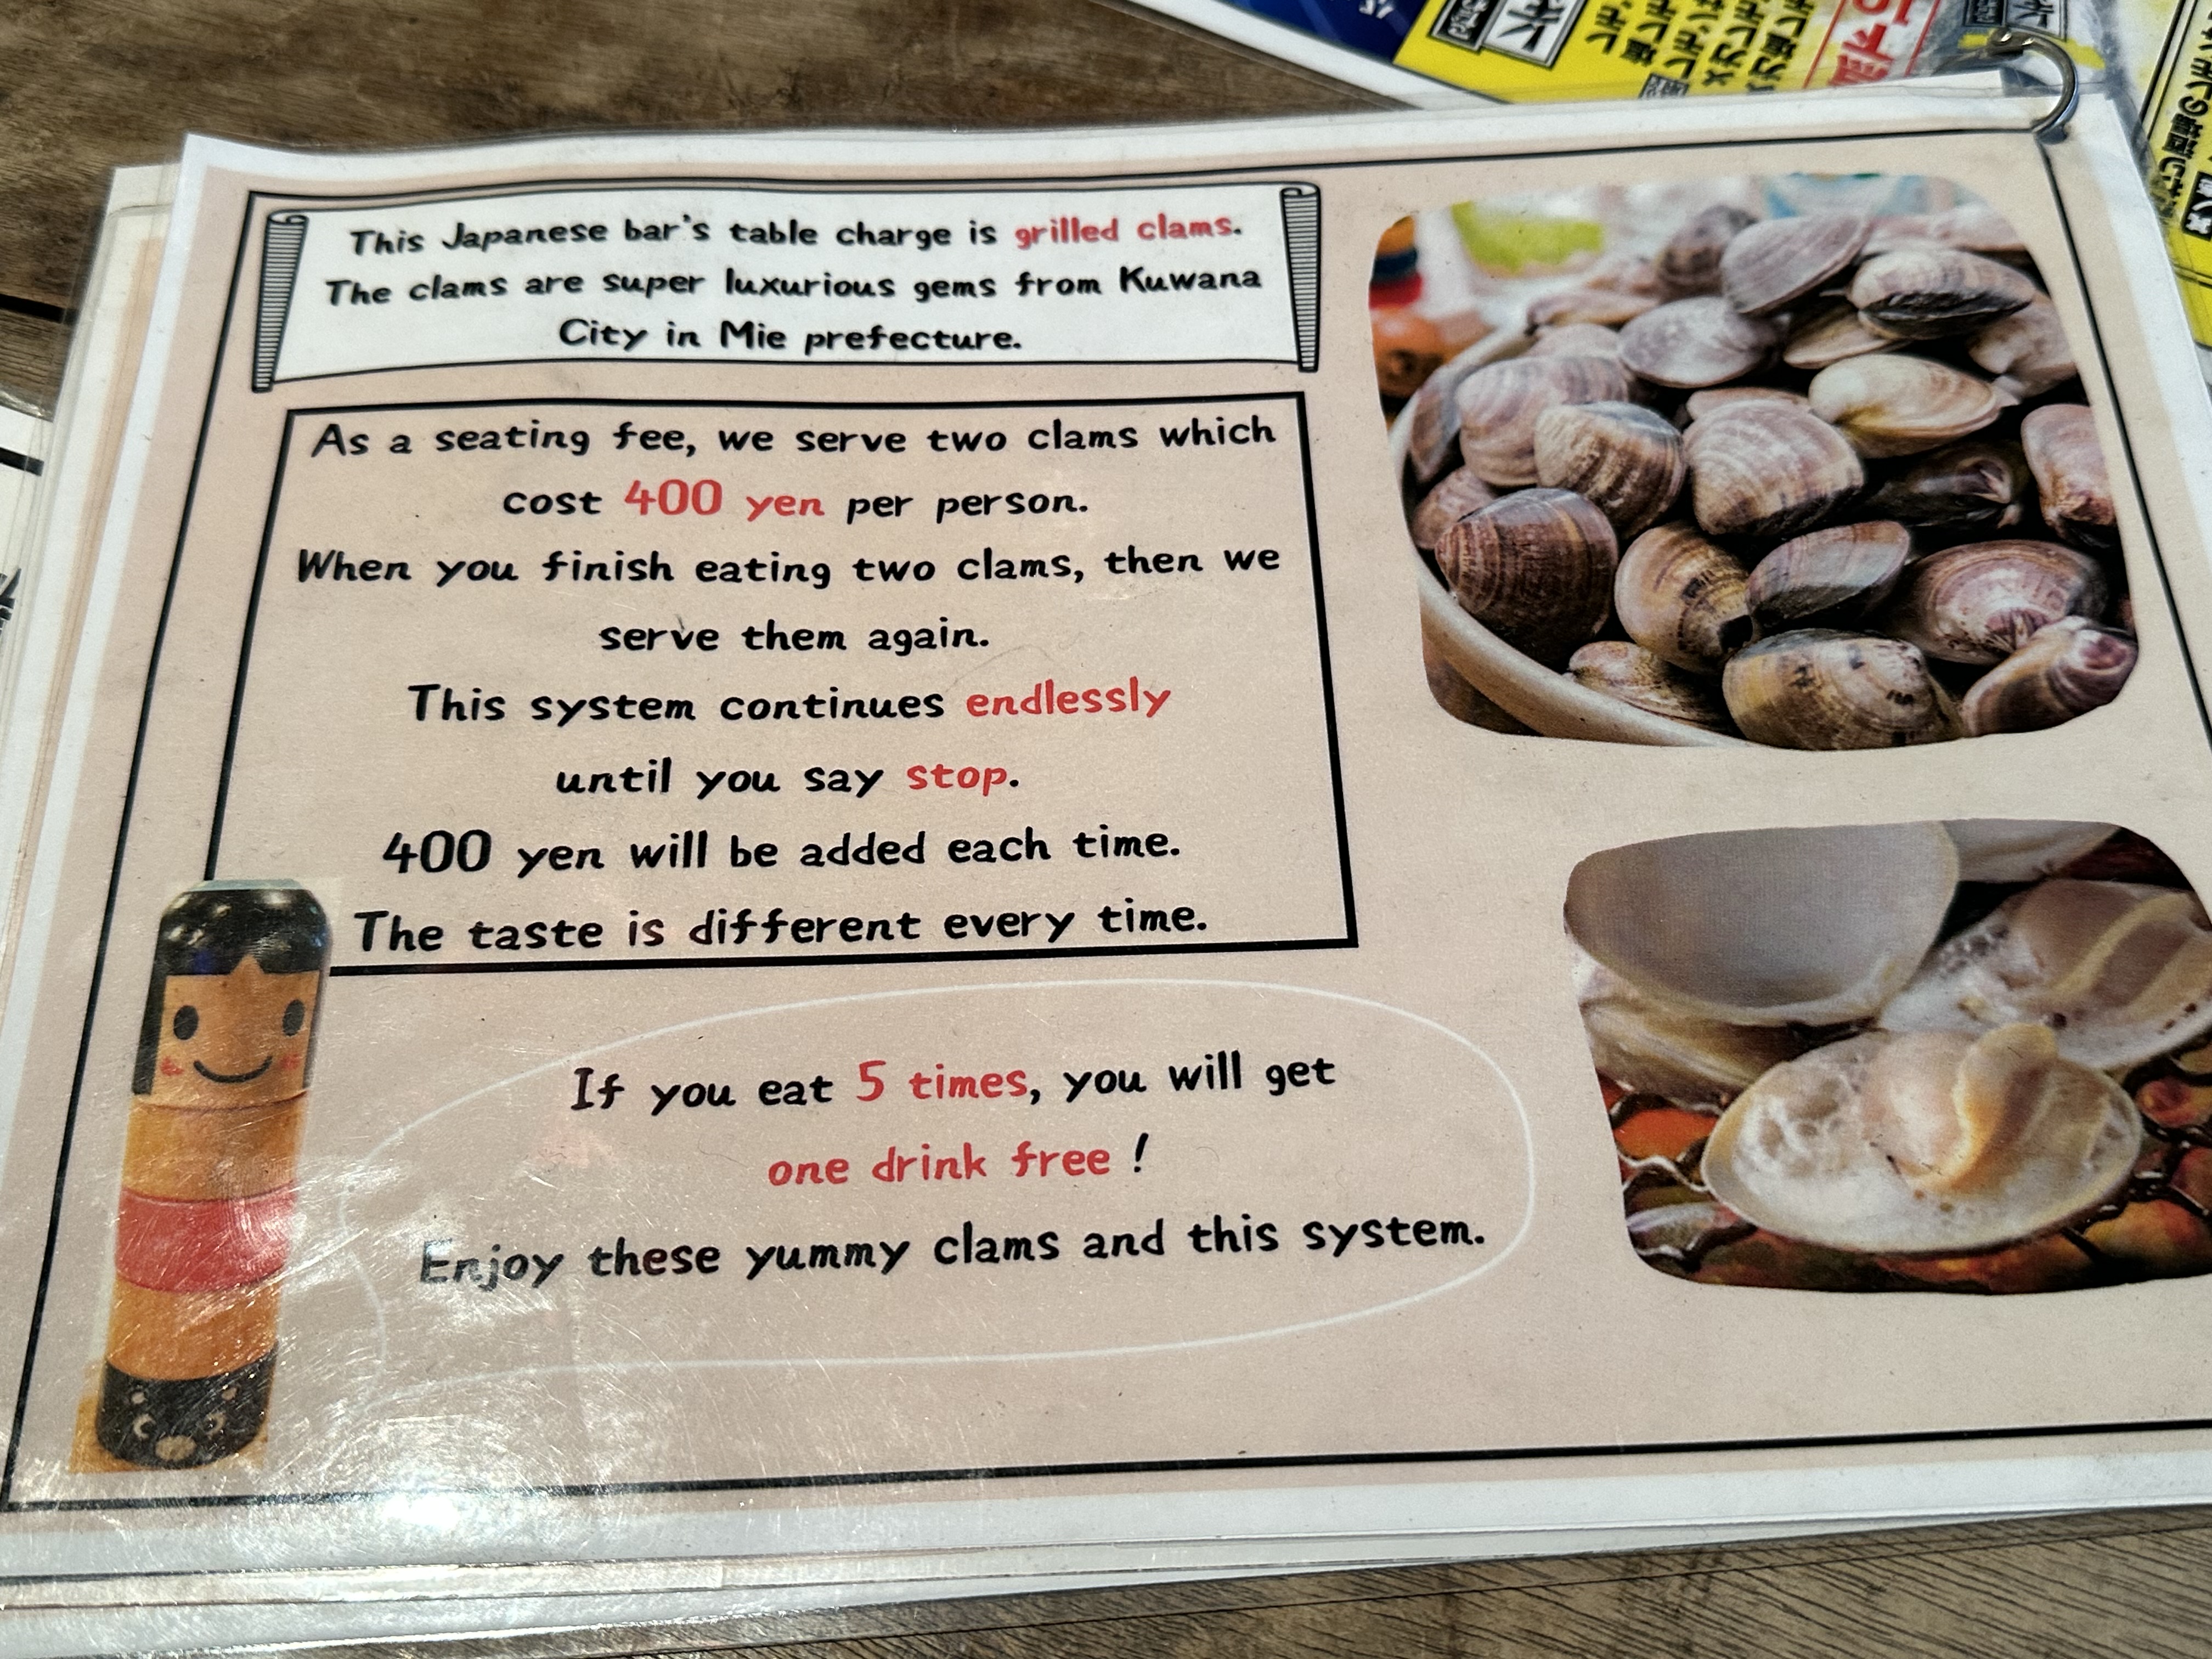 This Japanese bar's table charge is grilled clams.
The clams are super luxurious gems from Kuwana
City in Mie prefecture.
As a seating fee, we serve two clams which
cost 400 yen per person.
When you finish eating two clams, then we
serve them again.
This system continues endlessly
until you say stop.
400 yen will be added each time.
The taste is different every time.
If you eat 5 times, you will get
one drink free !
Enjoy these yummy clams and this system.